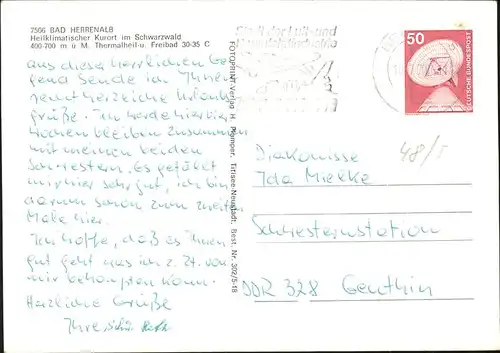 7506 BAD HERRENALB
Heilklimatischer Kurort im Schwarzwald
400-700 m ü M. Thermalheil-u. Freibad 30-35 C
aus dieser herrlichen Ge-
gend sende ich Ihnen
recht herzliche Urlaubs
grüße. Ich werde hier vier
Wochen bleiben zusammen
mit meinen beiden
Schwestern. Es gefällt
mir hier sehr gut, ich bin
darum schon zum zweiten
Male hier.
Ich hoffe, daß es Ihnen
gut geht was ich z. Zt. von
mir behaupten kann.
Herzliche Grüße
Ihre
FOTOPRINT-Verlag H. Pfomper, Titisee-Neustadt, Best. Nr. 302/5-18
Stadt der Luft- und
50
DEUTSCHE BUNDESPOST
48/5
Diakonisse
Ida Mielke
Schwesternstation
DDR 328 Genthin